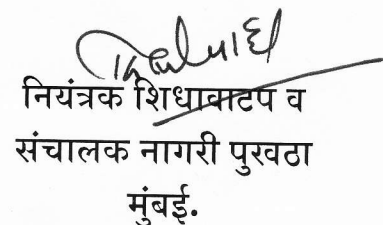 नियंत्रक शिधावाटप व
संचालक नागरी पुरवठा
मुंबई.